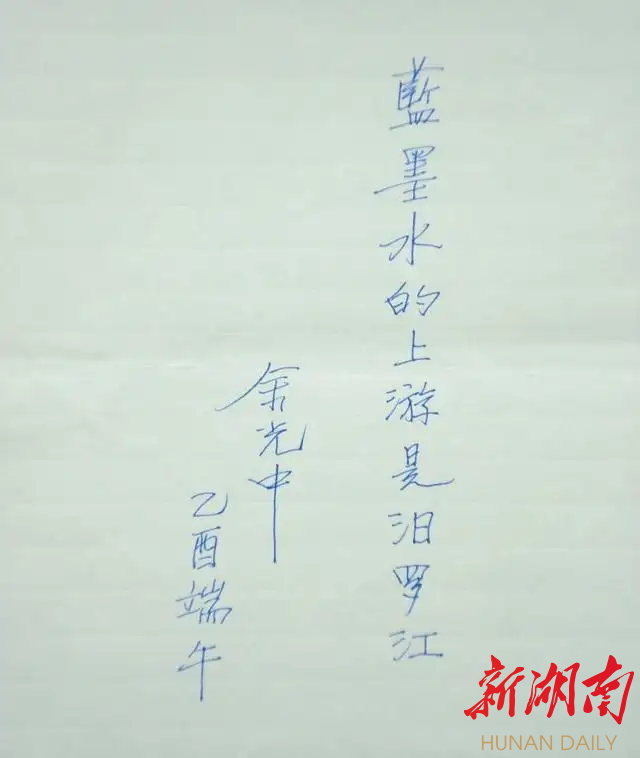 藍墨水的上游是汨罗江
余光中
乙酉端午
新湖南
HUNAN DAILY